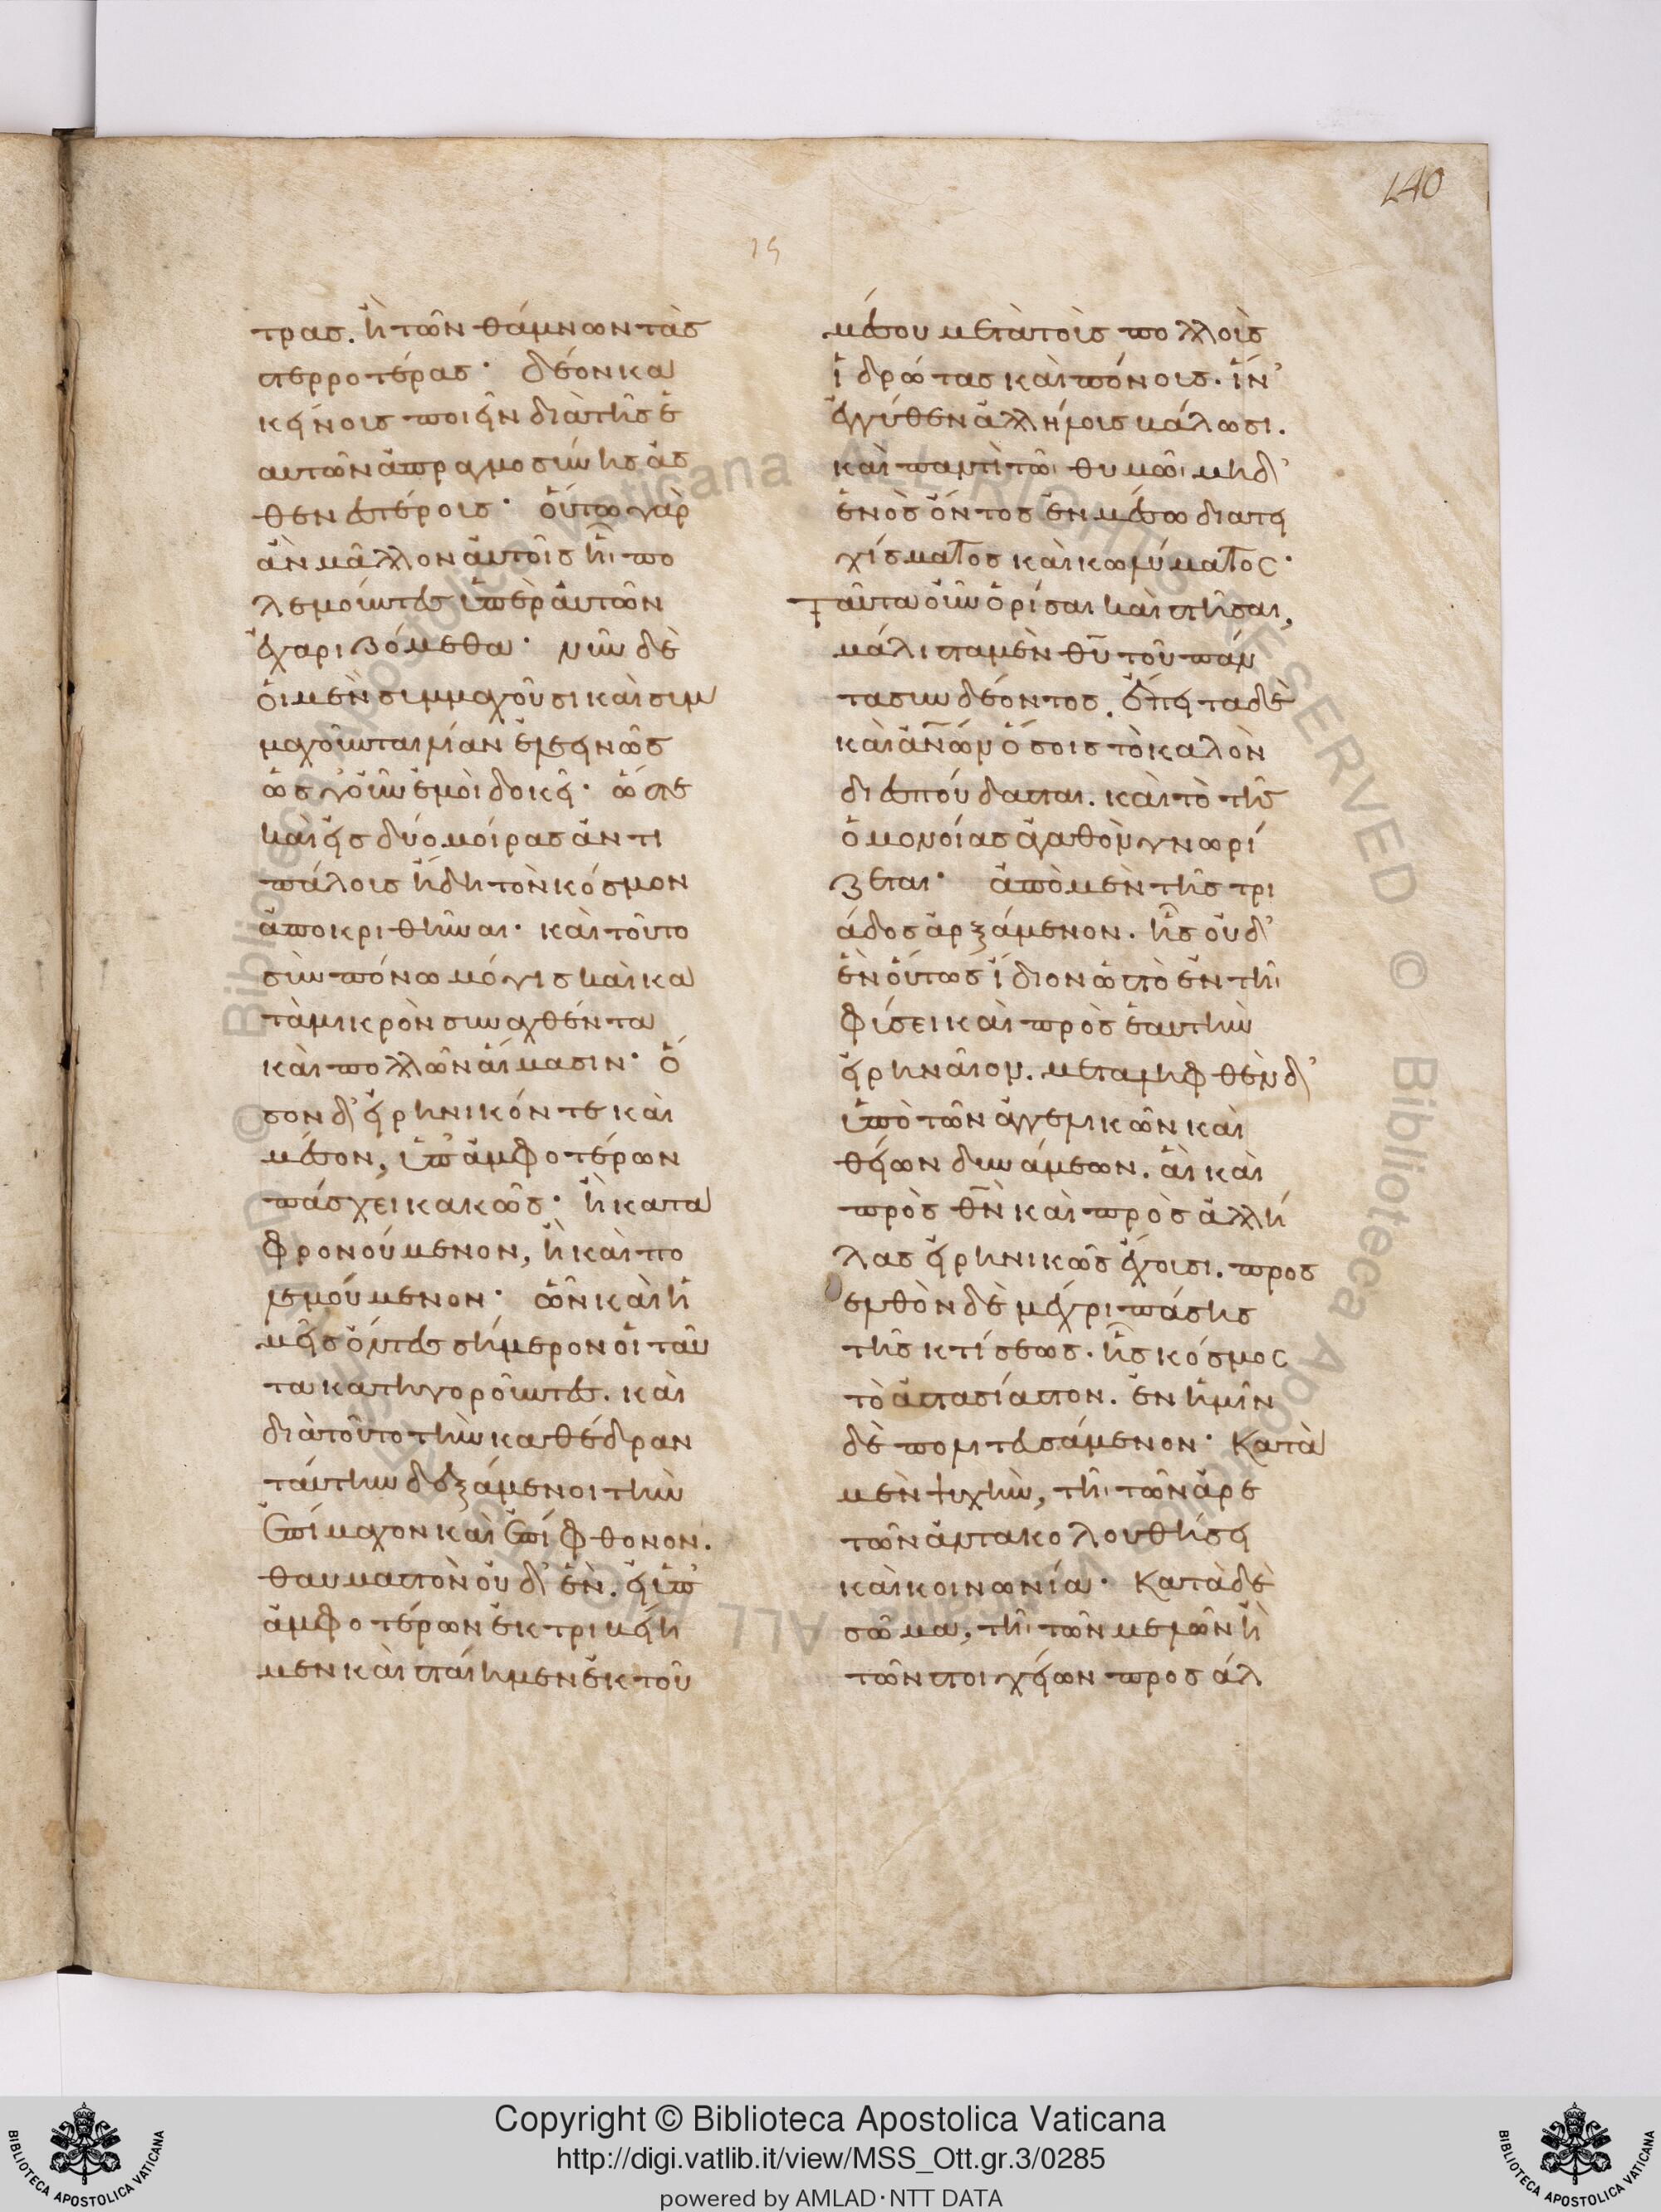 140
τρας. ἢ τῶν θάμνων τὰς
στερροτέρας· δέον κα
κείνοις ποιεῖν διὰ τῆς ἑ
αυτῶν ἀπραγμοσύνης ἀσ
θενεστέροις· οὕτω γὰρ
ἂν μᾶλλον αὐτοῖς ἢ πο
λεμοῦντες ὑπὲρ αὐτῶν
ἐχαριζόμεθα· νῦν δὲ
οἱ μὲν συμμαχοῦσι καὶ συμ
μαχοῦνται μίαν εὐγενῶς
ὥς γ' οὖν ἐμοὶ δοκεῖ· ὥστε
καὶ εἰς δύο μοίρας ἀντι
πάλους ἤδη τὸν κόσμον
ἀποκριθῆναι· καὶ τοῦτο
σὺν πόνω μόγις καὶ κα
τὰ μικρὸν συναχθέντα
καὶ πολλῶν αἵμασιν· ὅ
σον δ' εἰρηνικόν τε καὶ
μέσον, ὑπ' ἀμφοτέρων
πάσχει κακῶς· ἢ κατα
φρονούμενον, ἢ καὶ πο
λεμούμενον· ὧν καὶ ἡ
μεῖς ὄντες σήμερον οἱ ταῦ
τα κατηγοροῦντες. καὶ
διὰ τοῦτο τὴν καθέδραν
ταύτην δεξάμενοι τὴν
ἐπίμαχον καὶ ἐπίφθονον.
θαυμαστὸν οὐδ' ἓν. εἰ ὑπ'
ἀμφοτέρων ἐκτριβείη
μεν καὶ σταίημεν ἐκ τοῦ
μέσου μετὰ τοὺς πολλοὺς
ἱδρῶτας καὶ πόνους. ἵν'
ἐγγύθεν ἀλλήλους βάλωσι.
καὶ παντὶ τῶι θυμῶι μηδ'
ἑνὸς ὄντος ἐν μέσω διατει
χίσματος καὶ κωλύματος·
Ταῦτα οὖν ὁρίσαι καὶ στῆσαι,
μάλιστα μὲν θῦ τοῦ πάν
τα συνδέοντος. ἔπειτα δὲ
καὶ ἀνῶν ὅσοις τὸ καλὸν
διεσπούδασται. καὶ τὸ τῆς
ὁμονοίας ἀγαθὸν γνωρί
ζεται· ἀπὸ μὲν τῆς τρι
άδος ἀρξάμενον. ἧς οὐδ'
ἓν οὕτως ἴδιον ὡς τὸ ἓν τῆι
φύσει καὶ πρὸς ἑαυτὴν
εἰρηναῖον. μεταληφθὲν δ'
ὑπὸ τῶν ἀγγελικῶν καὶ
θείων δυνάμεων. αἳ καὶ
πρὸς θν καὶ πρὸς ἀλλή
λας εἰρηνικῶς ἔχουσι. προσ
ελθὸν δὲ μέχρι πάσης
τῆς κτίσεως. ἧς κόσμος
τὸ ἀστασίαστον. ἐν ἡμῖν
δὲ πολιτευσάμενον· Κατὰ
μὲν ψυχὴν, τῆι τῶν ἀρε
τῶν ἀντακολουθήσει
καὶ κοινωνία· Κατὰ δὲ
σῶμα, τῆι τῶν μελῶν ἢ
τῶν στοιχείων προς άλ
Copyright © Biblioteca Apostolica Vaticana
http://digi.vatlib.it/view/MSS_Ott.gr.3/0285
powered by AMLAD·NTT DATA